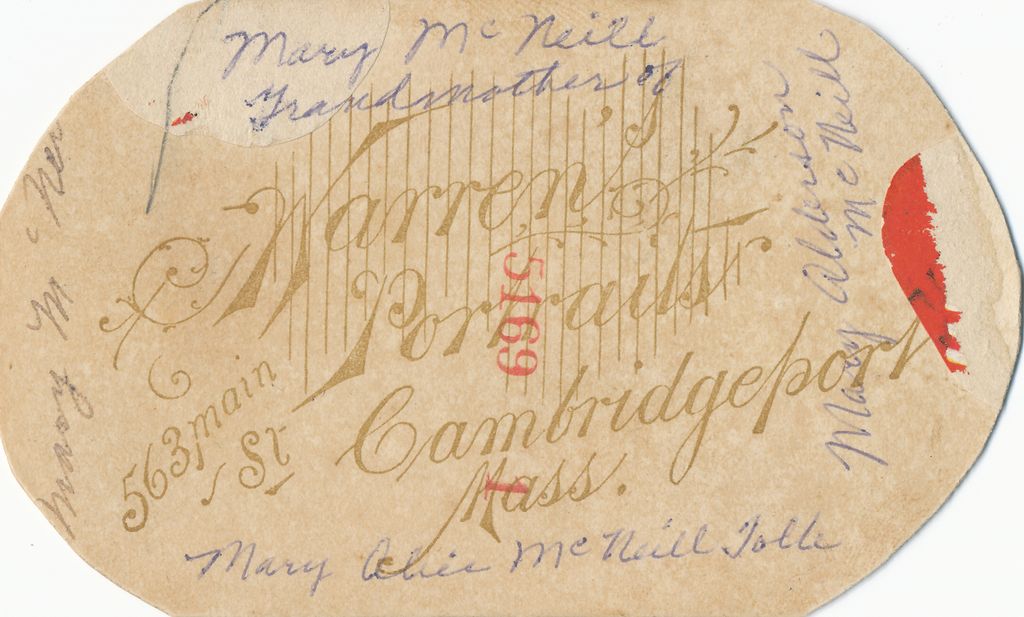 Mary McNeill
Grandmother of
Mary Alice McNeill Tolle
Mary Alderson
McNeill
Mary McNei
Warren's
Portraits
563 main
St
Cambridgeport
Mass.
5169
1